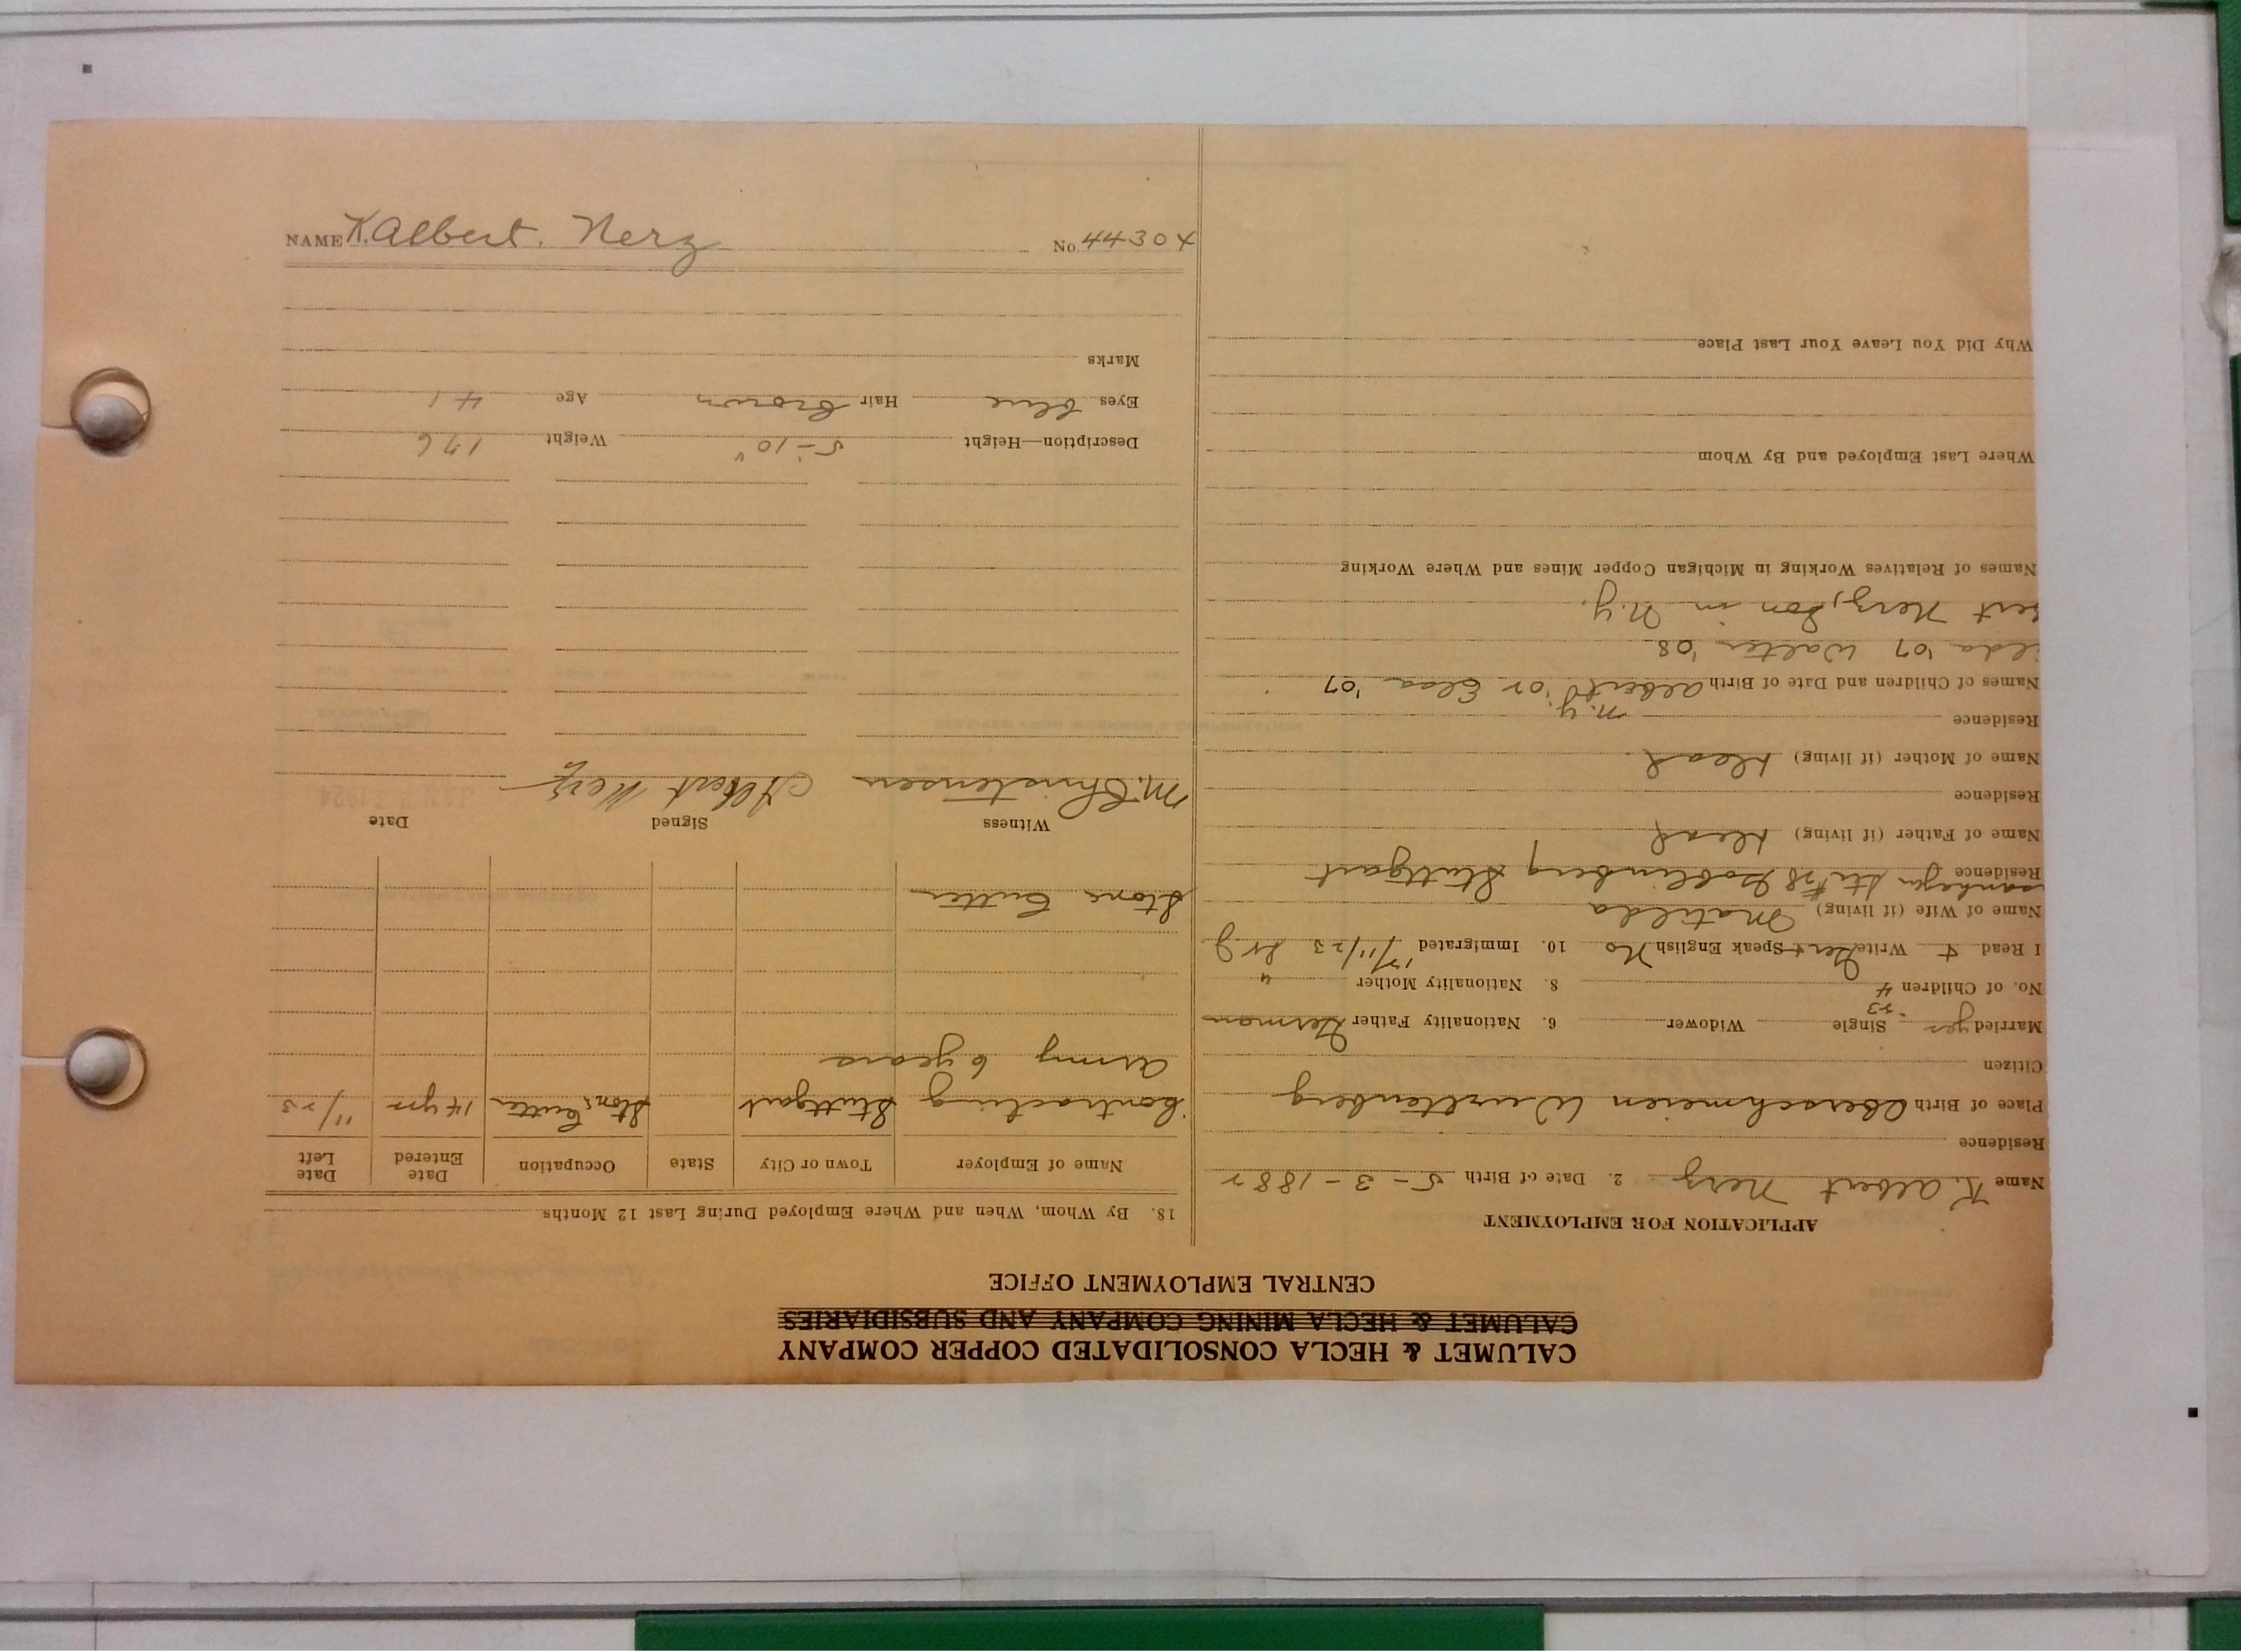 CALUMET & HECLA CONSOLIDATED COPPER COMPANY
CALUMET & HECLA MINING COMPANY AND SUBSIDIARIES
CENTRAL EMPLOYMENT OFFICE
APPLICATION FOR EMPLOYMENT
Name K. Albert Nerz 2. Date of Birth 5-3-1882
Residence
Place of Birth Oberschmeien Wurttenberg
Citizen
Married yes Single Widower 6. Nationality Father German
No. of Children 4 8. Nationality Mother "
I Read & Write Ger & Speak English No 10. Immigrated 11/23
Name of Wife (if living) Matilda
Residence Stuttgart
Name of Father (if living) dead
Residence
Name of Mother (if living) dead
Residence N.Y.
Names of Children and Date of Birth Albert Elsa '07
ilda '07 Walter '08
bert Nerz, Son in N.Y.
Names of Relatives Working in Michigan Copper Mines and Where Working
Where Last Employed and By Whom
Why Did You Leave Your Last Place
18. By Whom, When and Where Employed During Last 12 Months
Name of Employer Town or City State Occupation Date Entered Date Left
Contracting Stuttgart Stone Cutter 14 yrs 11/23
Army 6 years
Stone Cutter
Witness Signed Date
M. Christensen Albert Nerz
Description—Height 5-10" Weight 176
Eyes blue Hair brown Age 41
Marks
NAME K. Albert. Nerz No. 44304